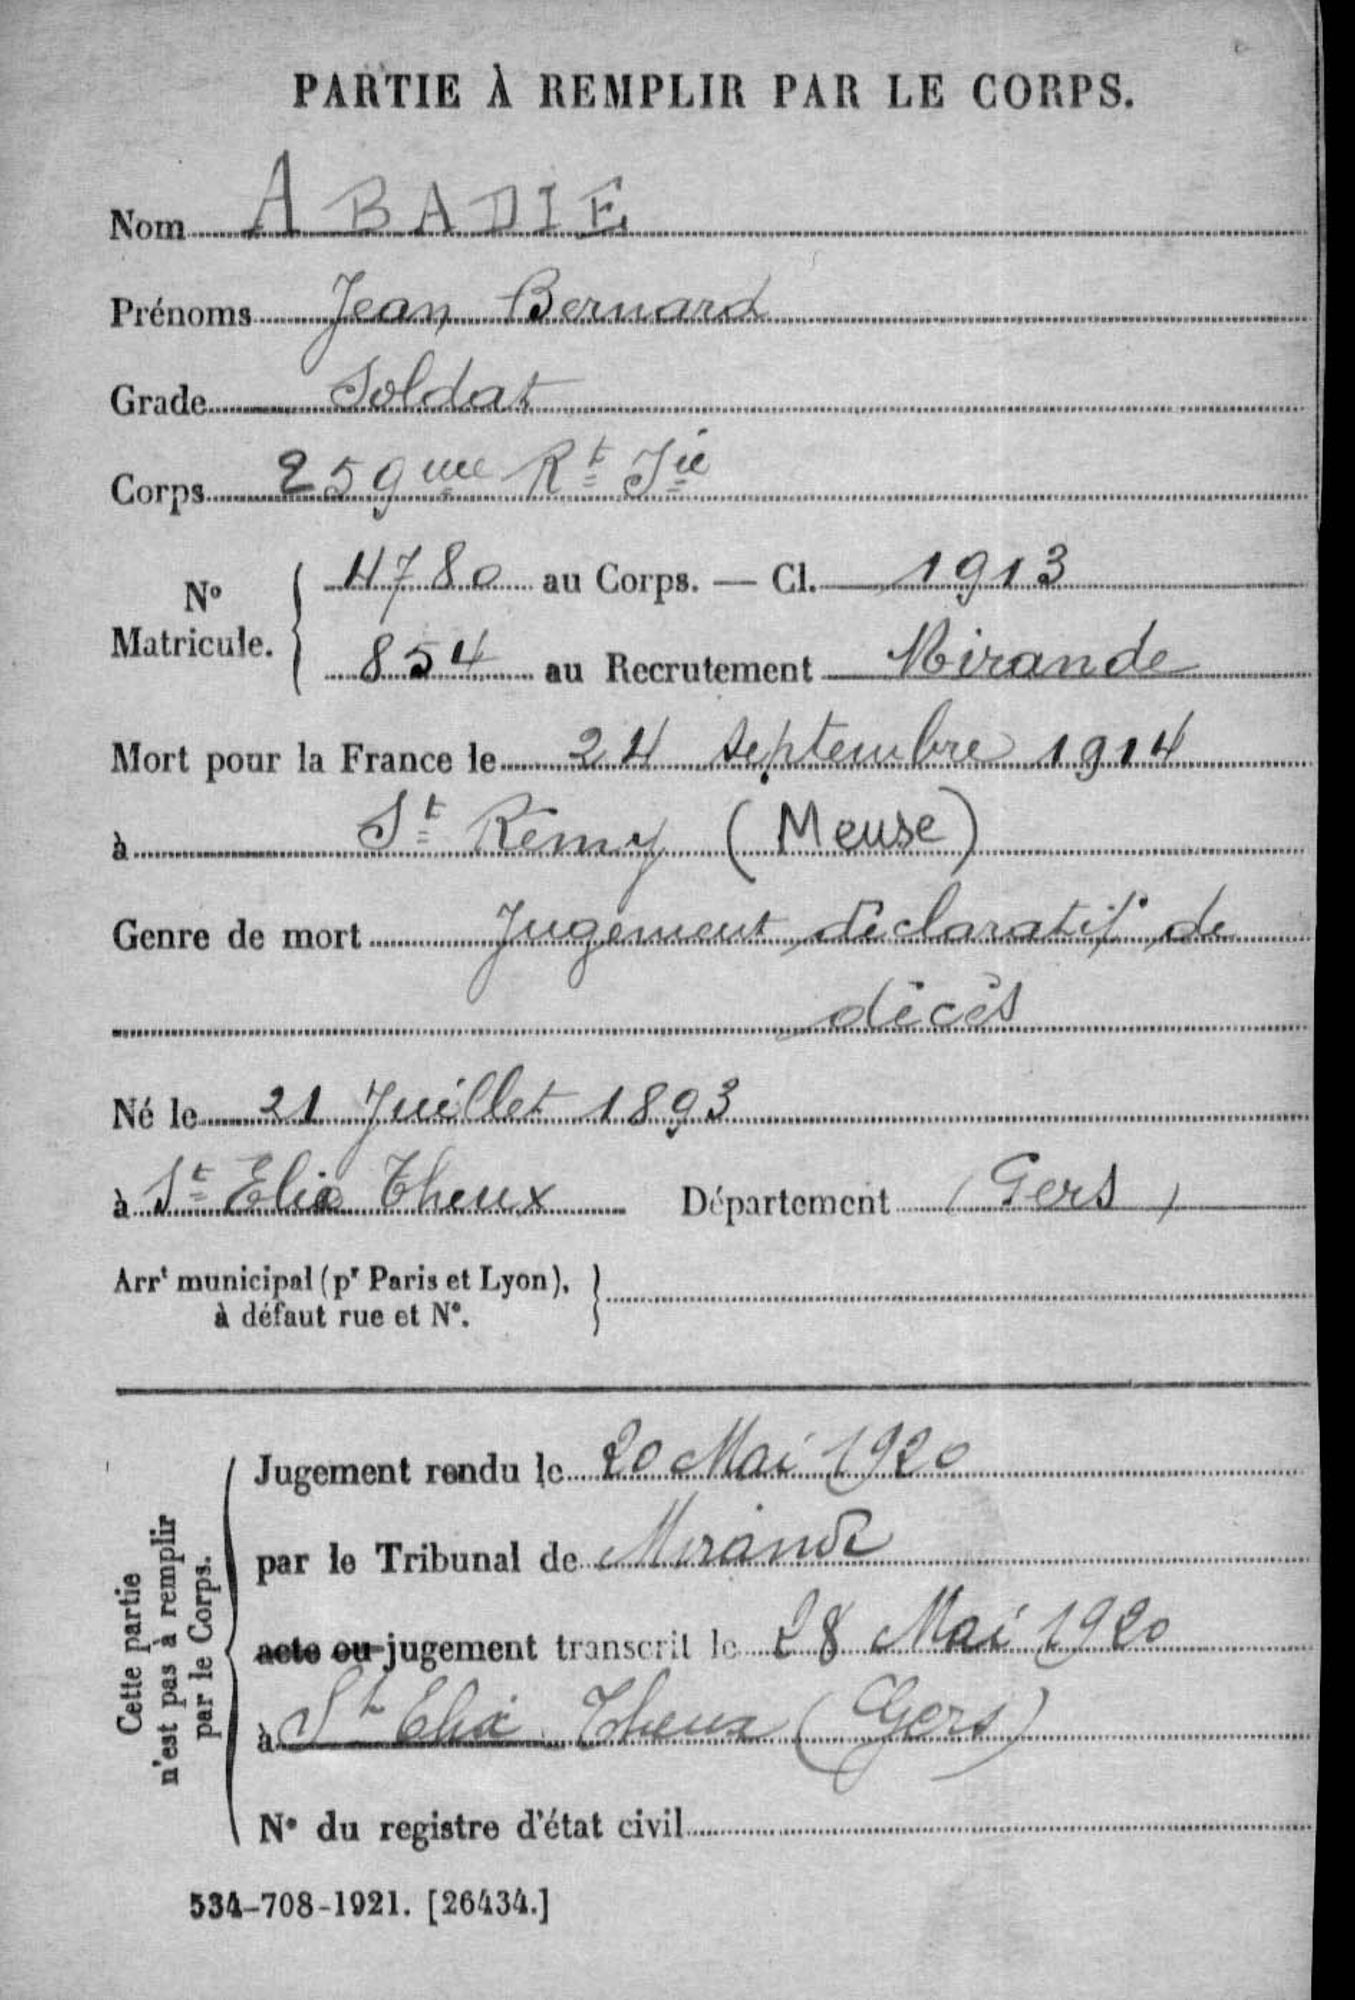 PARTIE À REMPLIR PAR LE CORPS.
Nom ABADIE
Prénoms Jean Bernard
Grade Soldat
Corps 259ème Rt Iie
No Matricule. { 4780 au Corps. — Cl. 1913
854 au Recrutement Mirande
Mort pour la France le 24 septembre 1914
à St Rémy (Meuse)
Genre de mort Jugement déclaratif de
décès
Né le 21 Juillet 1893
à St Elix Theux Département (Gers)
Arrt municipal (pr Paris et Lyon), }
à défaut rue et N°.
Cette partie
n'est pas à remplir
par le Corps.
Jugement rendu le 20 Mai 1920
par le Tribunal de Mirande
acte ou jugement transcrit le 28 Mai 1920
à St Elix Theux (Gers)
N° du registre d'état civil
534-708-1921. [26434.]